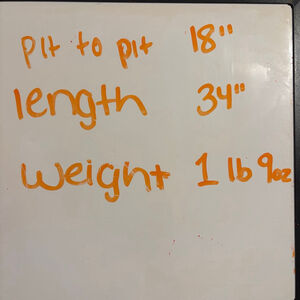 pit to pit 18"
length 34"
weight 1 lb 9oz